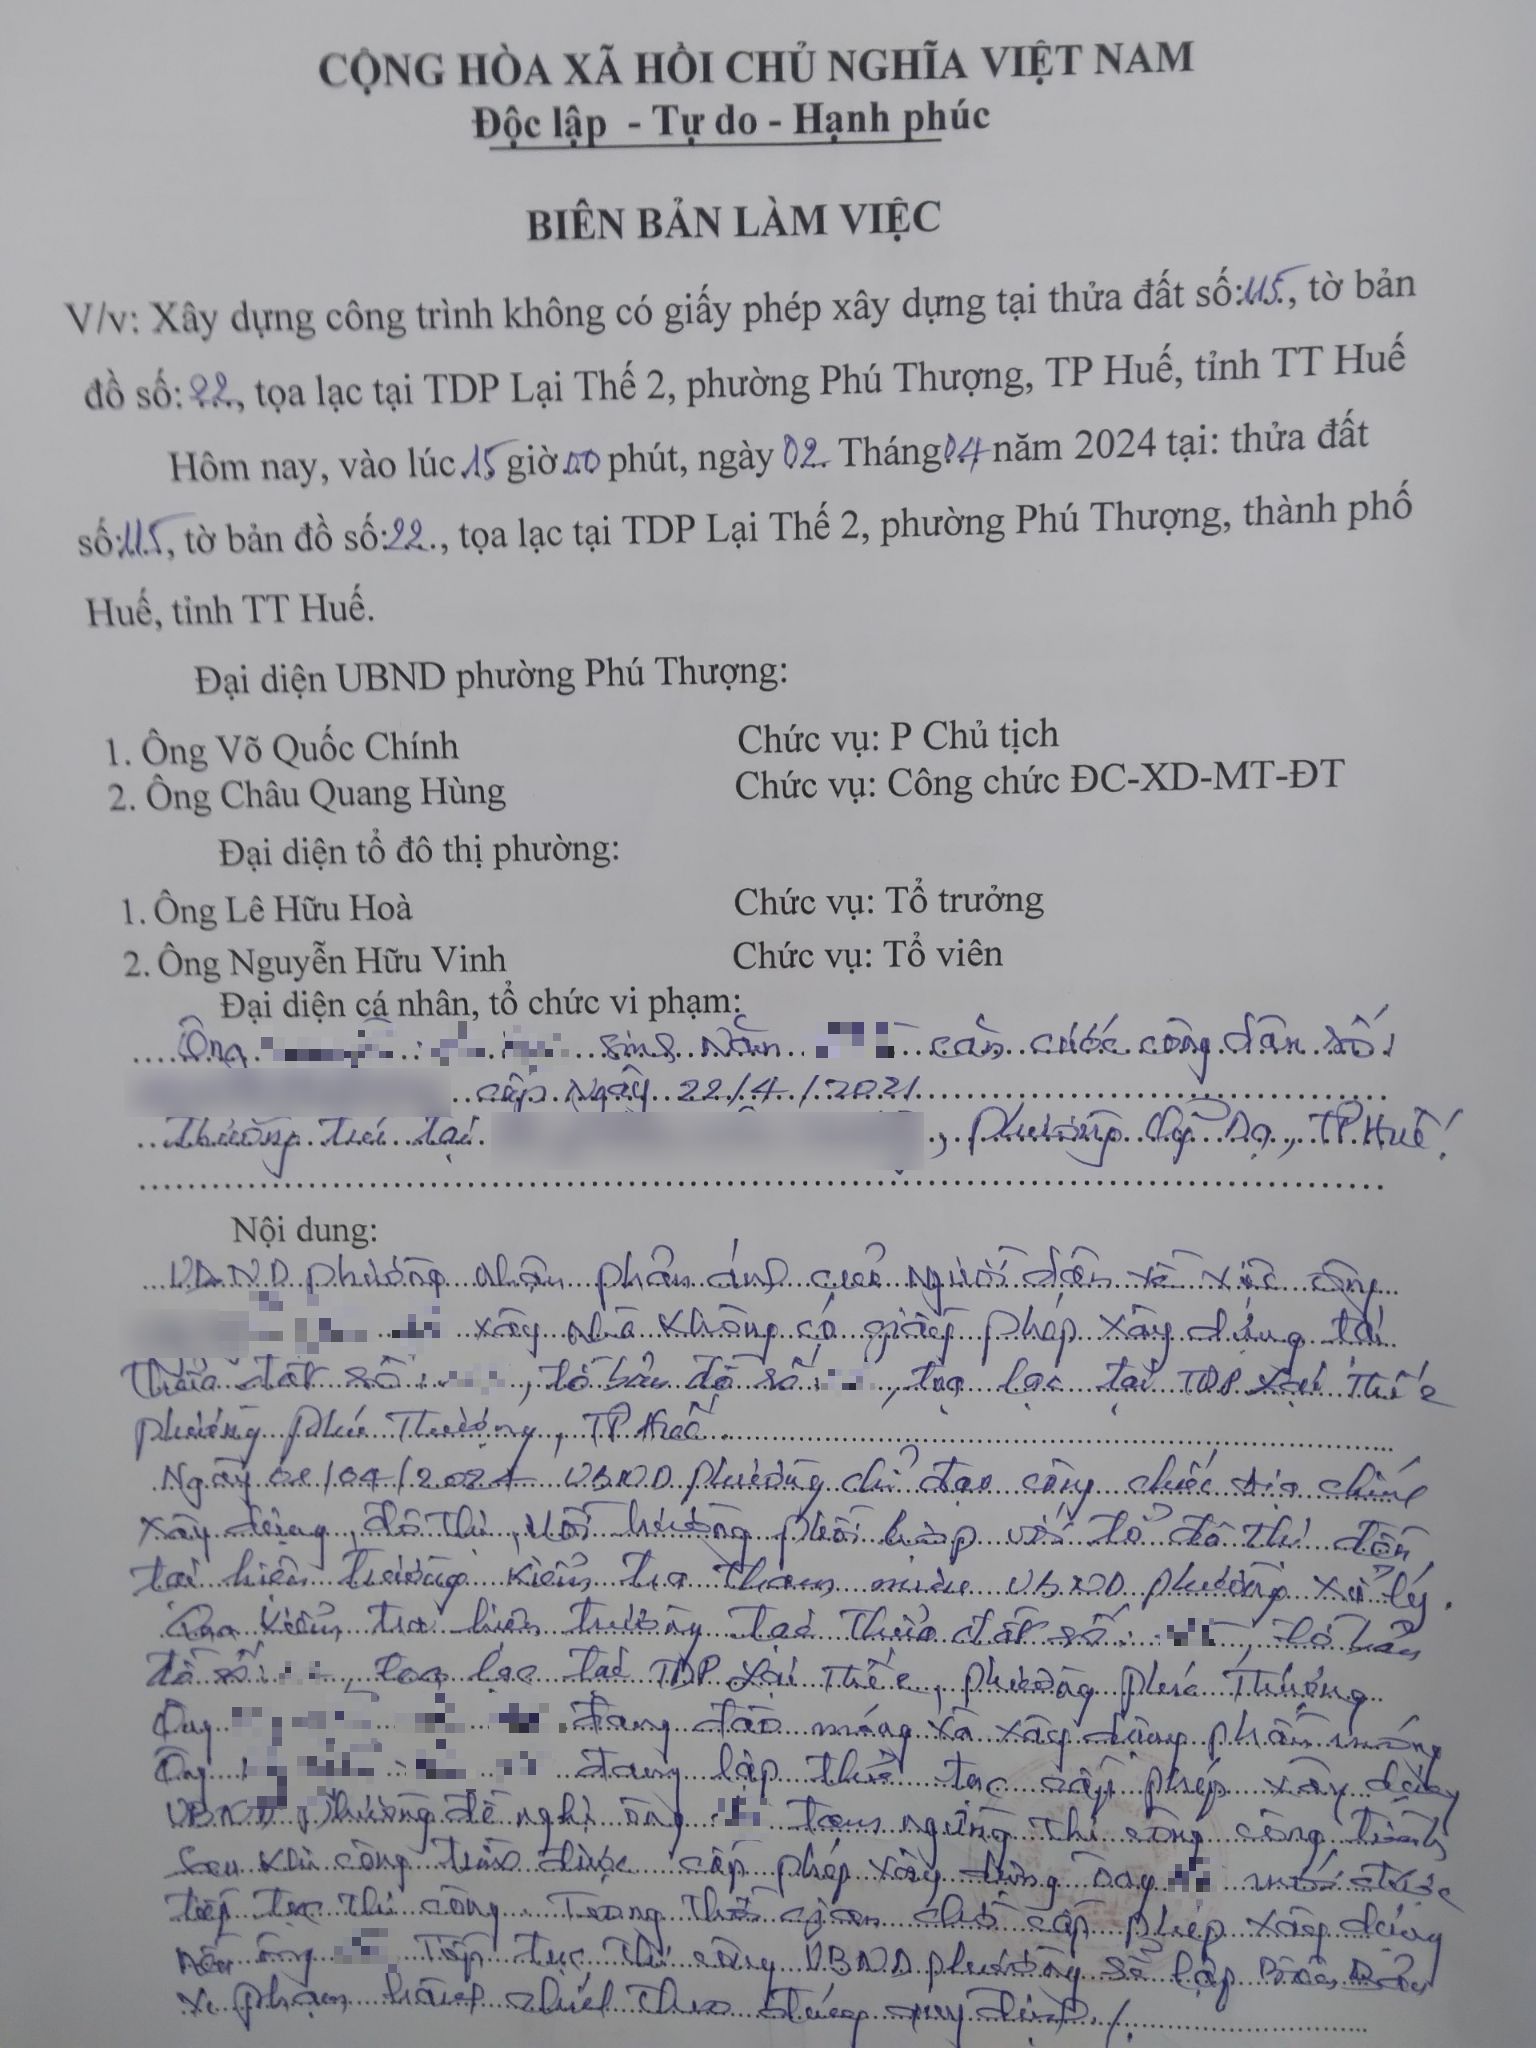 CỘNG HÒA XÃ HỘI CHỦ NGHĨA VIỆT NAM
Độc lập - Tự do - Hạnh phúc
BIÊN BẢN LÀM VIỆC
V/v: Xây dựng công trình không có giấy phép xây dựng tại thửa đất số: 115, tờ bản
đồ số: 22, tọa lạc tại TDP Lại Thế 2, phường Phú Thượng, TP Huế, tỉnh TT Huế
Hôm nay, vào lúc 15 giờ 00 phút, ngày 02 Tháng 04 năm 2024 tại: thửa đất
số: 115, tờ bản đồ số: 22, tọa lạc tại TDP Lại Thế 2, phường Phú Thượng, thành phố
Huế, tỉnh TT Huế.
Đại diện UBND phường Phú Thượng:
1. Ông Võ Quốc Chính Chức vụ: P Chủ tịch
2. Ông Châu Quang Hùng Chức vụ: Công chức ĐC-XD-MT-ĐT
Đại diện tổ đô thị phường:
1. Ông Lê Hữu Hoà Chức vụ: Tổ trưởng
2. Ông Nguyễn Hữu Vinh Chức vụ: Tổ viên
Đại diện cá nhân, tổ chức vi phạm:
Ông sinh năm căn cước công dân số:
cấp ngày 22/4/2021
Thường trú tại , phường Vỹ Dạ, TP Huế.
Nội dung:
UBND phường nhận phản ánh của người dân về việc ông
xây nhà không có giấy phép xây dựng tại
thửa đất số: , tờ bản đồ số: , tọa lạc tại TDP Lại Thế 2
phường Phú Thượng, TP Huế.
Ngày 02/04/2024 UBND phường chỉ đạo công chức địa chính
xây dựng, đô thị, môi trường phối hợp với tổ đô thị đến
tại hiện trường kiểm tra tham mưu UBND phường xử lý.
Qua kiểm tra hiện trường tại thửa đất số: , tờ bản
đồ số: , tọa lạc tại TDP Lại Thế 2, phường Phú Thượng
Ông đang đào móng và xây dựng phần móng
Ông đang lập thủ tục cấp phép xây dựng
UBND phường đề nghị ông tạm ngừng thi công công trình
Sau khi công trình được cấp phép xây dựng ông mới được
tiếp tục thi công. Trong thời gian chờ cấp phép xây dựng
nếu ông tiếp tục thi công UBND phường sẽ lập Biên Bản
vi phạm hành chính theo đúng quy định./.